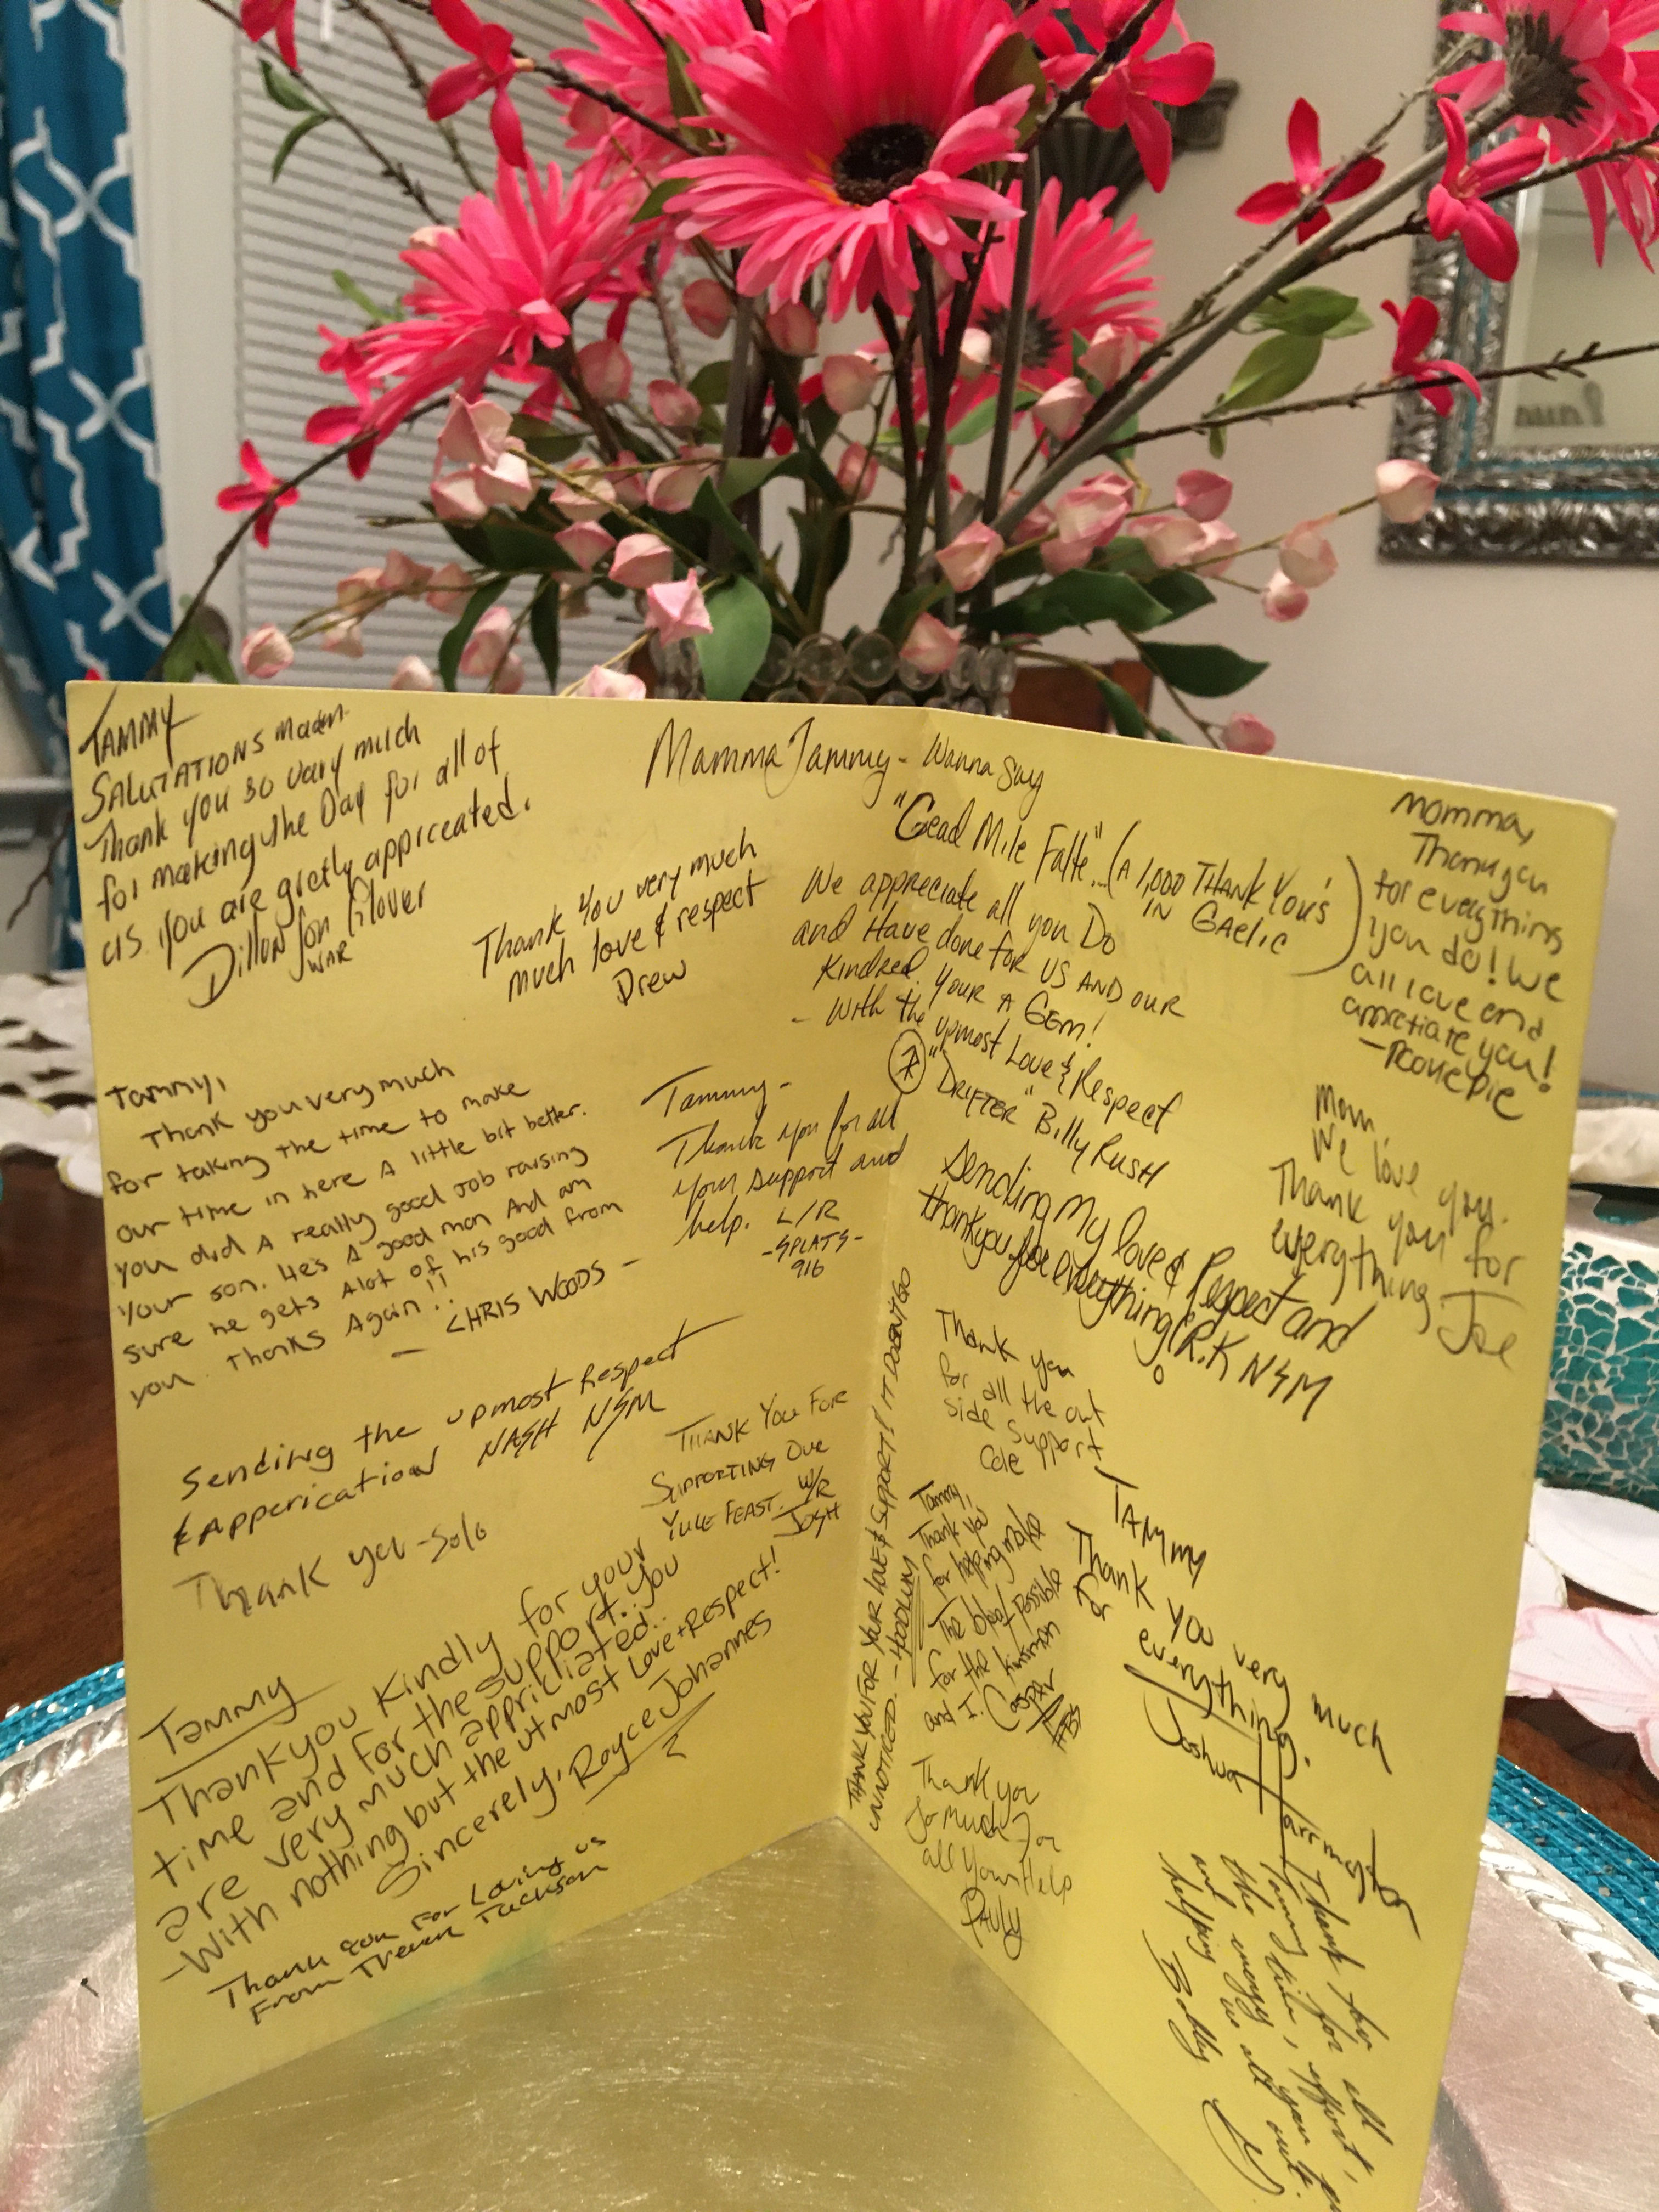 TAMMY
SALUTATIONS Madam
Thank you so vary much
for making the Day for all of
us. you are gretly appriceated.
Dillon Jon Glover
WAR
Thank You very much
much love & respect
Drew
Tammy,
Thank you very much
for taking the time to make
our time in here A little bit better.
you did A really good Job raising
your son. He's A good man And am
sure he gets Alot of his good from
you. Thanks Again!!
- CHRIS WOODS -
Tammy-
Thank you for all
your support and
help. L/R
-SPLATS-
916
Sending the upmost Respect
& Apperication NASH NSM
Thank you-Solo
THANK YOU FOR
SUPPORTING OUR
YULE FEAST. W/R
JOSH
Tammy
Thankyou Kindly for your
time and for the support. you
are very much appriciated..
-With nothing but the utmost Love+Respect!
Sincerely, Royce Johannes
Thank You For Loving us
From Treven Jackson
Mamma Tammy- Wanna Say
"Cead Mile Failte"...(A 1,000 THANK YOU'S
IN GAELIC
We appreciate all you Do
and Have done for us AND OUR
Kindred. Your A Gem!
- With the upmost Love & Respect
"DRIFTER" Billy Rush
Sending My love & Respect and
thankyou for everything! R.K NSM
momma,
Thankyou
for everything
you do! We
all love and
appretiate you!
Mom,
We love you.
Thank you for
everything. Joe
Thank you
for all the out
side support
Cole
THANK YOU FOR YOUR LOVE & SUPPORT! IT DOESN'T GO
UNNOTICED. - HOODLUM
Tammy,
Thank you
for helping make
The bloot Possible
for the kinsman
and I. Casper
TAMMY
Thank you very much
for everything.
Joshua Harrington
Thank you
So much For
all Your Help
PAULY
Thank for all
Tammy for
time, effort,
the energy
and
helping us all out.
Bobby